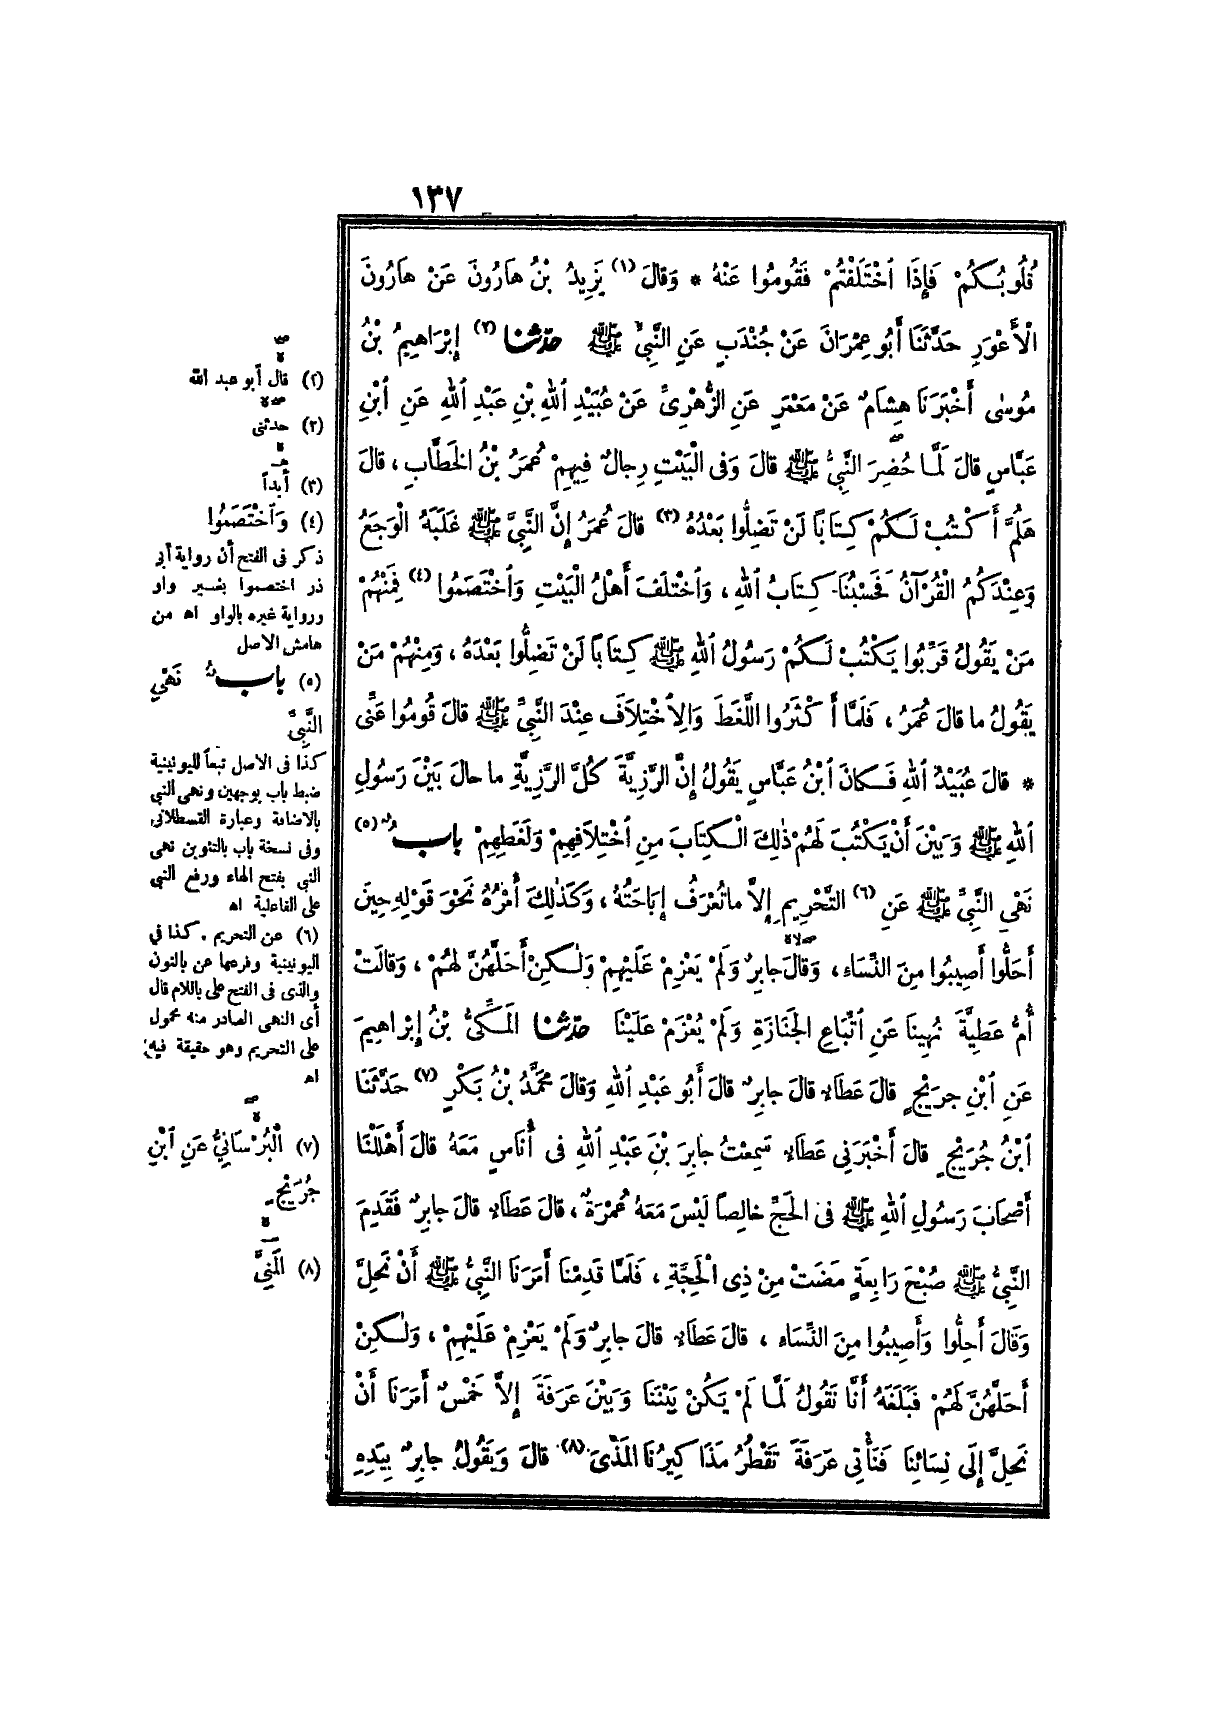 ١٣٧
قُلُوبُكُمْ فَإِذَا ٱخْتَلَفْتُمْ فَقُومُوا عَنْهُ * وَقالَ (١) يَزِيدُ بْنُ هَارُونَ عَنْ هَارُونَ
الْأَعْوَرِ حَدَّثَنَا أَبُو عِمْرَانَ عَنْ جُنْدَبٍ عَنِ النَّبِيِّ ﷺ حدّثنا (٢) إِبْرَاهِيمُ بْنُ
مُوسٰى أَخْبَرَنَا هِشَامٌ عَنْ مَعْمَرٍ عَنِ الزُّهْرِيِّ عَنْ عُبَيْدِ ٱللهِ بْنِ عَبْدِ ٱللهِ عَنِ ٱبْنِ
عَبَّاسٍ قالَ لَمَّا حُضِرَ النَّبِيُّ ﷺ قالَ وَفِى الْبَيْتِ رِجالٌ فِيهِمْ عُمَرُ بْنُ الخَطَّابِ ، قالَ
هَلُمَّ أَكْتُبْ لَكُمْ كِتَاباً لَنْ تَضِلُّوا بَعْدُهُ (٣) قالَ عُمَرُ إِنَّ النَّبِيَّ ﷺ غَلَبَهُ الْوَجَعُ
وَعِنْدَكُمُ الْقُرْآنُ فَحَسْبُنَا كِتَابُ ٱللهِ ، وَٱخْتَلَفَ أَهْلُ الْبَيْتِ وَٱخْتَصَمُوا (٤) فَمِنْهُمْ
مَنْ يَقُولُ قَرِّبُوا يَكْتُبْ لَكُمْ رَسُولُ ٱللهِ ﷺ كِتَاباً لَنْ تَضِلُّوا بَعْدَهُ ، وَمِنْهُمْ مَنْ
يَقُولُ ما قالَ عُمَرُ ، فَلَمَّا أَكْثَرُوا اللَّغَطَ وَالِٱخْتِلَافَ عِنْدَ النَّبِيِّ ﷺ قالَ قُومُوا عَنِّى
* قالَ عُبَيْدُ ٱللهِ فَكانَ ٱبْنُ عَبَّاسٍ يَقُولُ إِنَّ الرَّزِيَّةَ كُلَّ الرَّزِيَّةِ ما حالَ بَيْنَ رَسُولِ
ٱللهِ ﷺ وَبَيْنَ أَنْ يَكْتُبَ لَهُمْ ذٰلِكَ الْكِتَابَ مِنِ ٱخْتِلَافِهِمْ وَلَغَطِهِمْ بابٌ (٥)
نَهْيِ النَّبِيِّ ﷺ عَنِ (٦) التَّحْرِيمِ إِلاَّ ما تُعْرَفُ إِبَاحَتُهُ ، وَكَذٰلِكَ أَمْرُهُ نَحْوَ قَوْلِهِ حِينَ
أَحَلُّوا أَصِيبُوا مِنَ النِّسَاءِ ، وَقالَ جابِرٌ وَلَمْ يَعْزِمْ عَلَيْهِمْ وَلٰكِنْ أَحَلَّهُنَّ لَهُمْ ، وَقالَتْ
أُمُّ عَطِيَّةَ نُهِينَا عَنِ ٱتِّبَاعِ الجَنَازَةِ وَلَمْ يُعْزَمْ عَلَيْنَا حدّثنا الْمَكِّىُّ بْنُ إِبْرَاهِيمَ
عَنِ ٱبْنِ جرَيْجٍ قالَ عَطَاءٌ قالَ جابِرٌ قالَ أَبُو عَبْدِ ٱللهِ وَقالَ مُحَمَّدُ بْنُ بَكْرٍ (٧) حَدَّثَنَا
ٱبْنُ جُرَيْجٍ قالَ أَخْبَرَنِى عَطَاءٌ سَمِعْتُ جابِرَ بْنَ عَبْدِ ٱللهِ فى أُنَاسٍ مَعَهُ قالَ أَهْلَلْنَا
أَصْحَابَ رَسُولِ ٱللهِ ﷺ فى الحَجِّ خالِصاً لَيْسَ مَعَهُ عُمْرَةٌ ، قالَ عَطَاءٌ قالَ جابِرٌ فَقَدِمَ
النَّبِيُّ ﷺ صُبْحَ رَابِعَةٍ مَضَتْ مِنْ ذِى الْحِجَّةِ ، فَلَمَّا قَدِمْنَا أَمَرَنَا النَّبِيُّ ﷺ أَنْ نَحِلَّ
وَقالَ أَحِلُّوا وَأَصِيبُوا مِنَ النِّسَاءِ ، قالَ عَطَاءٌ قالَ جابِرٌ وَلَمْ يَعْزِمْ عَلَيْهِمْ ، وَلٰكِنْ
أَحَلَّهُنَّ لَهُمْ فَبَلَغَهُ أَنَّا نَقُولُ لَمَّا لَمْ يَكُنْ بَيْنَنَا وَبَيْنَ عَرَفَةَ إِلاَّ خَمْسٌ أَمَرَنَا أَنْ
نَحِلَّ إِلَى نِسَائِنَا فَنَأْتِى عَرَفَةَ تَقْطُرُ مَذَاكِيرُنَا الْمَذْىَ (٨) قالَ وَيَقُولُ جابِرٌ بِيَدِهِ
(١) قال أبو عبد الله
(٢) حدثنى
(٣) أَبداً
(٤) وَٱخْتَصَمُوا
ذكر فى الفتح أن رواية أبى
ذر اختصموا بغير واو
ورواية غيره بالواو اه من
هامش الاصل
(٥) بابُ نَهْيِ
النَّبِيِّ
كذا فى الاصل تبعاً لليونينية
ضبط باب بوجهين ونهى النبى
بالاضافة وعبارة القسطلانى
وفى نسخة باب بالتنوين نهى
النبى بفتح الهاء ورفع النبى
على الفاعلية اه
(٦) عن التحريم . كذا فى
اليونينية وفرعها عن بالنون
والذى فى الفتح على باللام قال
أى النهى الصادر منه محمول
على التحريم وهو حقيقة فيه
اه
(٧) الْبُرْسَانِيُّ عَنِ ٱبْنِ
جُرَيْجٍ
(٨) الْمَنِيَّ